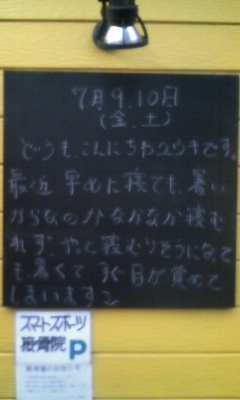 7月9.10日
(金.土)
どうも、こんにちわユウキです。
最近 早めに寝ても、暑い
からなのかなかなか寝む
れず、やっと寝むりそうになって
も、暑くて すぐ目が覚めて
しまいます
スマートスポーツ
接骨院 P